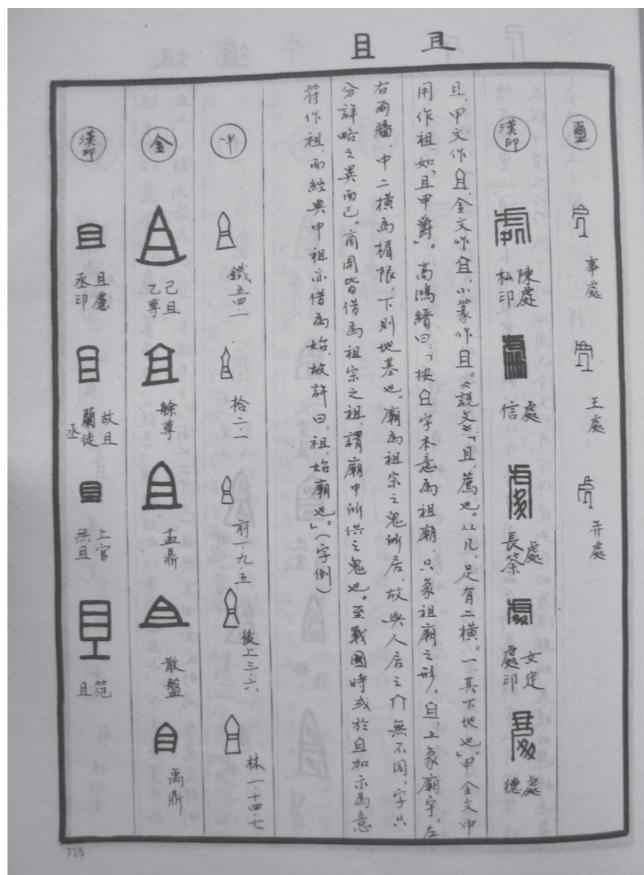 且 且
璽
事處
王處
弄處
漢印
陳處
私印
處
信
處
長築
女定
處印
處
德
且,甲文作且,金文作且,小篆作且。《說文》「且,薦也。从几,足有二橫。一,其下地也。」甲金文中
用作祖,如「且甲爵」。高鴻縉曰:「按且字本意為祖廟,只象祖廟之形。且,上象廟宇,左
右兩牆,中二橫為楣限,下則地基也。廟為祖宗之鬼所居,故與人居之介無不同,字只
分詳略之異而已。商周皆借為祖宗之祖,謂廟中所供之鬼也。至戰國時或於且加示為意
符作祖,而經典中祖亦借為始,故許曰,祖,始廟也」。(字例)
甲
鐵五四·一
拾二·一
前一·九·五
後上三·六
林一·十四·七
金
己且
乙尊
艅尊
盂鼎
散盤
禹鼎
漢印
且慮
丞印
故且
蘭徒
丞
上官
無且
范
且
715